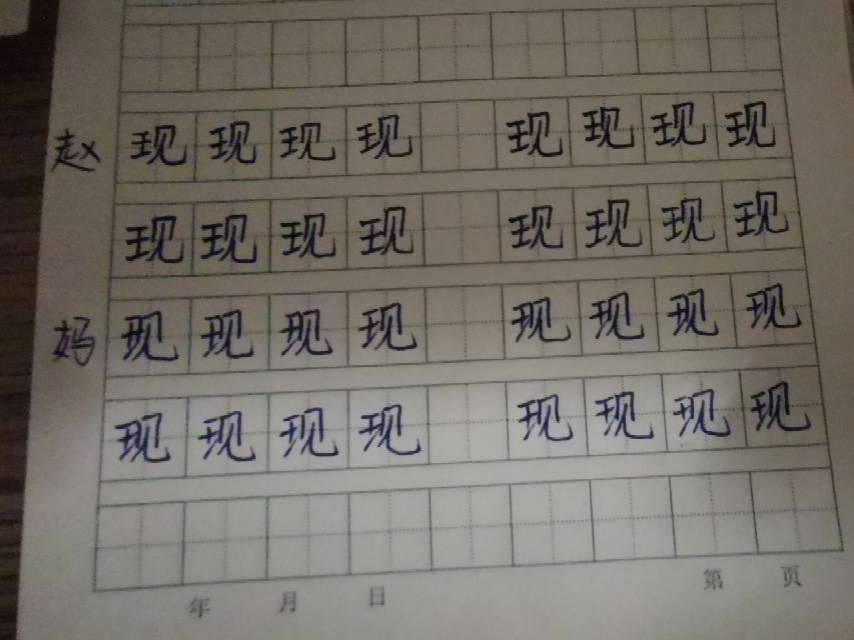 赵 现 现 现 现 现 现 现 现
现 现 现 现 现 现 现 现
妈 现 现 现 现 现 现 现 现
现 现 现 现 现 现 现 现
年 月 日 第 页